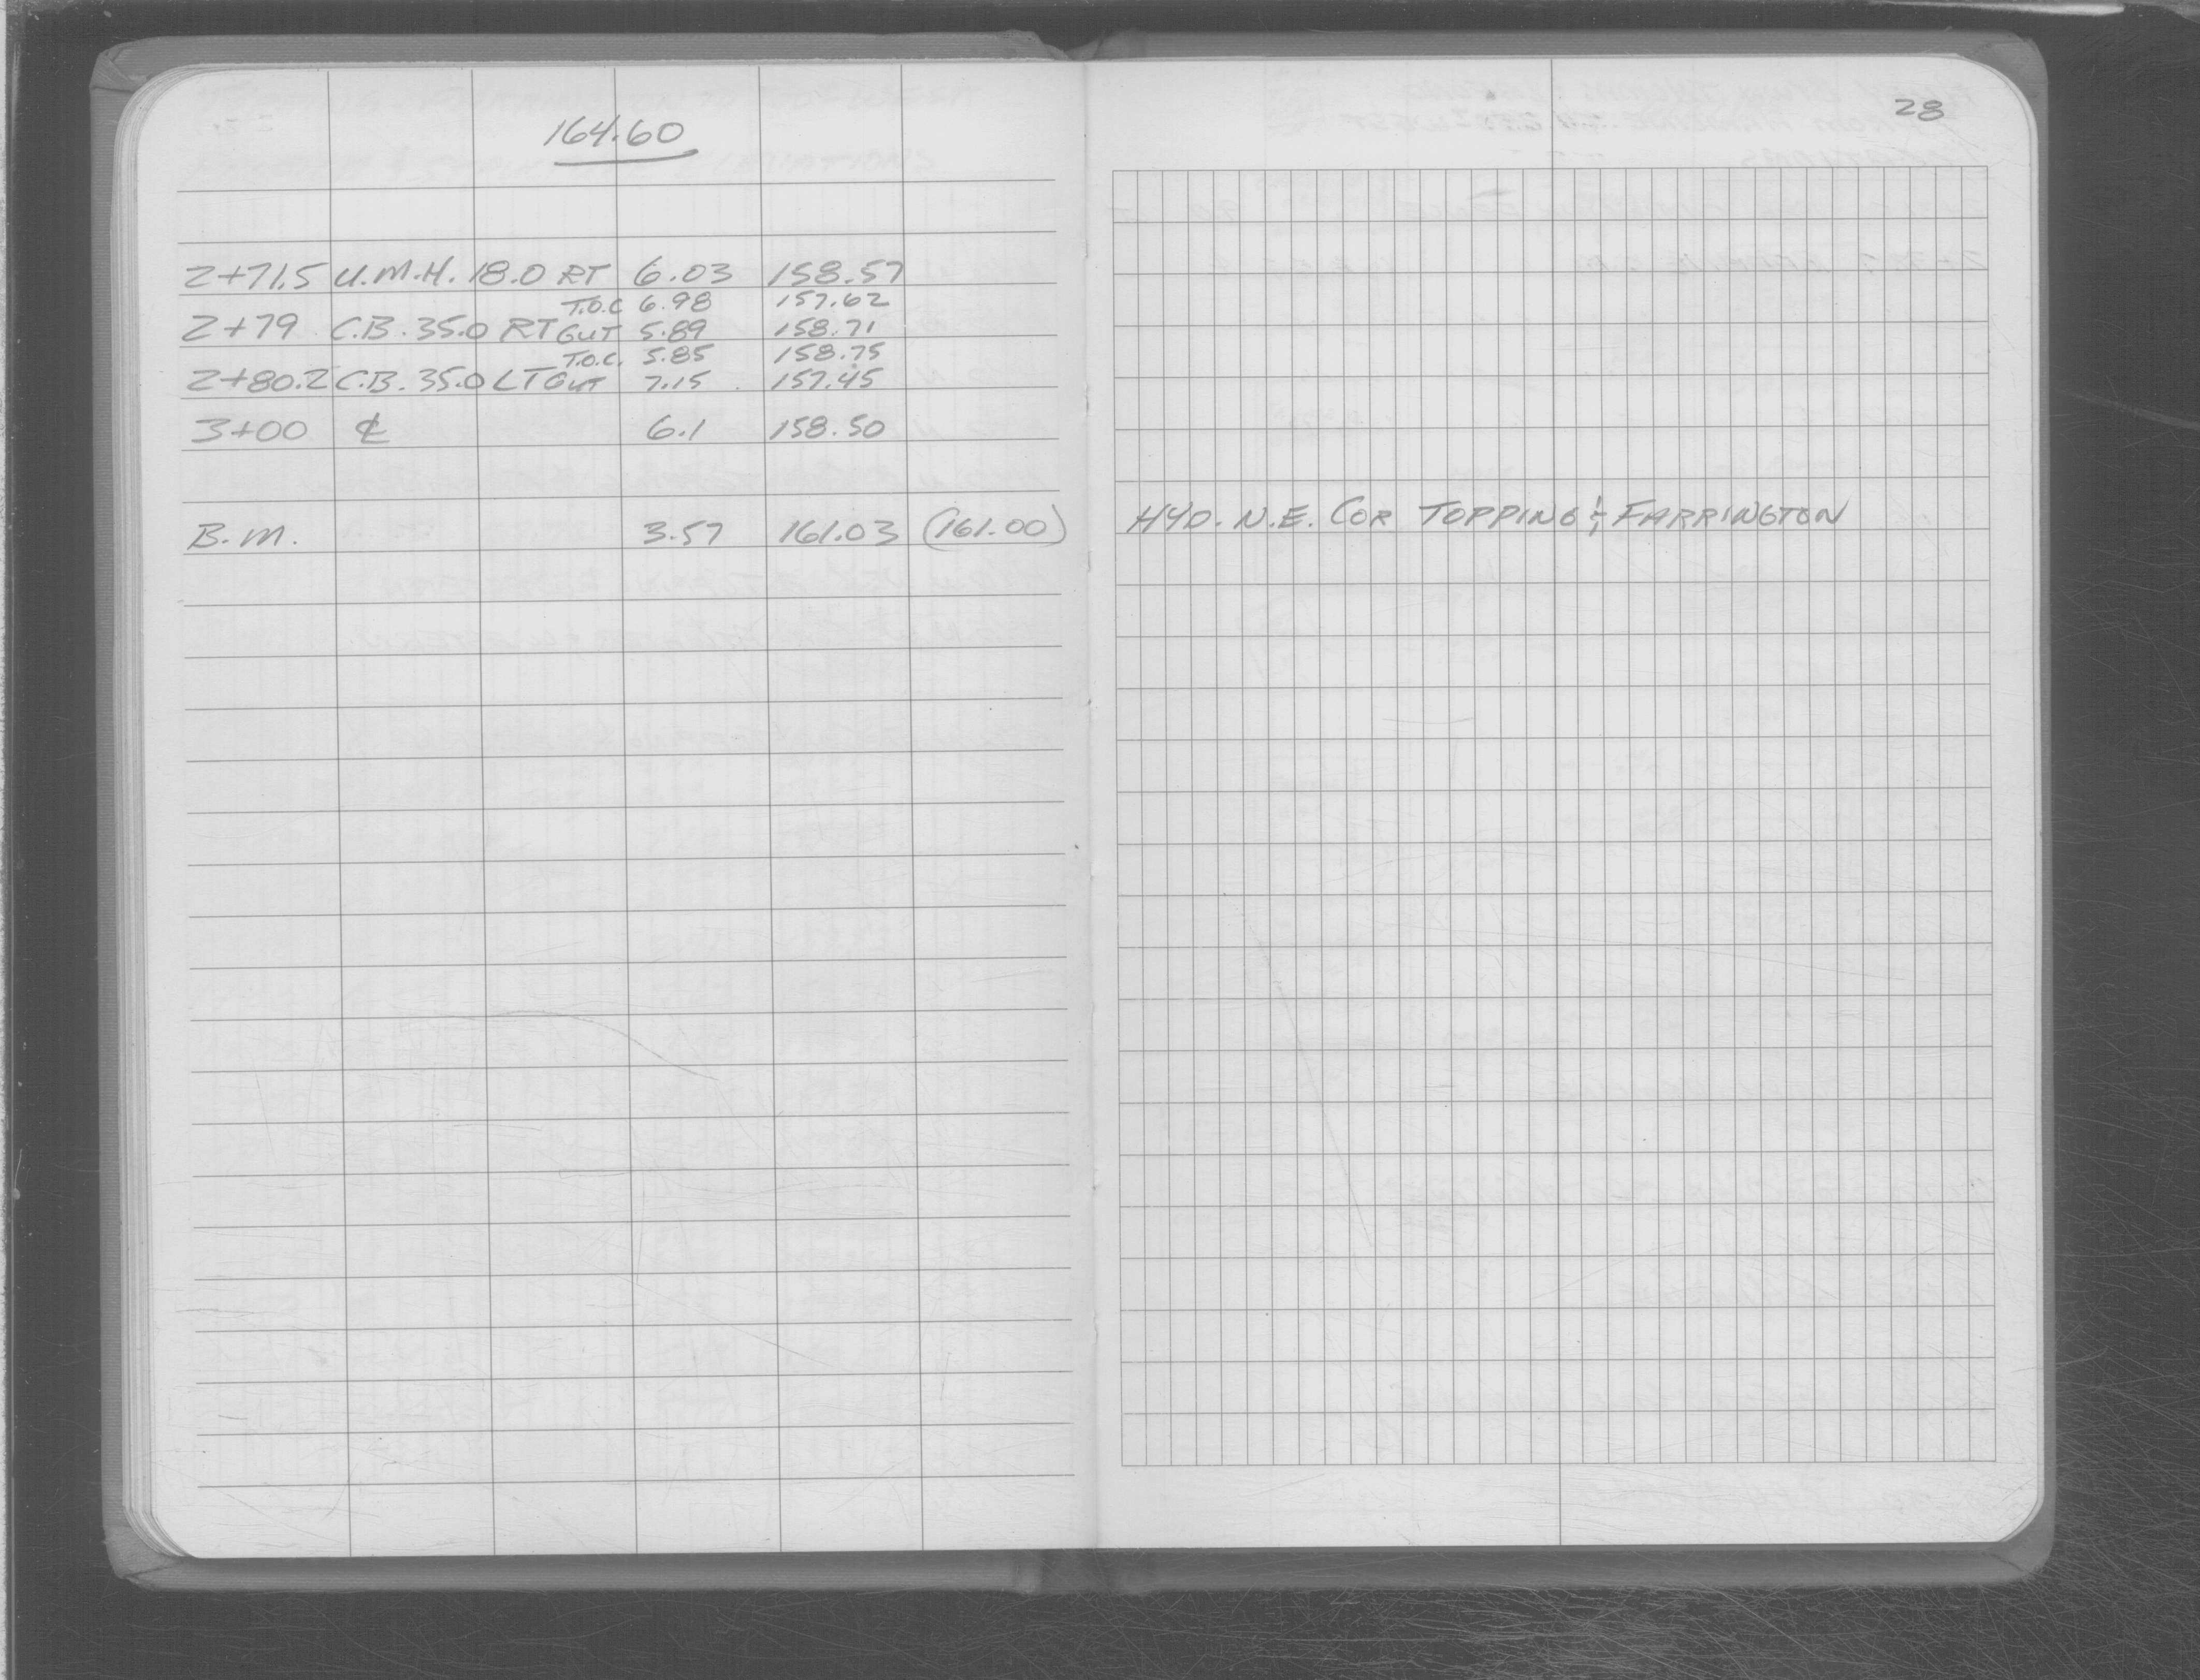 164.60
28
2+71.5 U.M.H. 18.0 RT 6.03 158.57
T.O.C 6.98 157.62
2+79 C.B. 35.0 RT GUT 5.89 158.71
T.O.C. 5.85 158.75
2+80.2 C.B. 35.0 LT GUT 7.15 157.45
3+00 ℄ 6.1 158.50
B.M. 3.57 161.03 (161.00) HYD. N.E. COR TOPPING & FARRINGTON